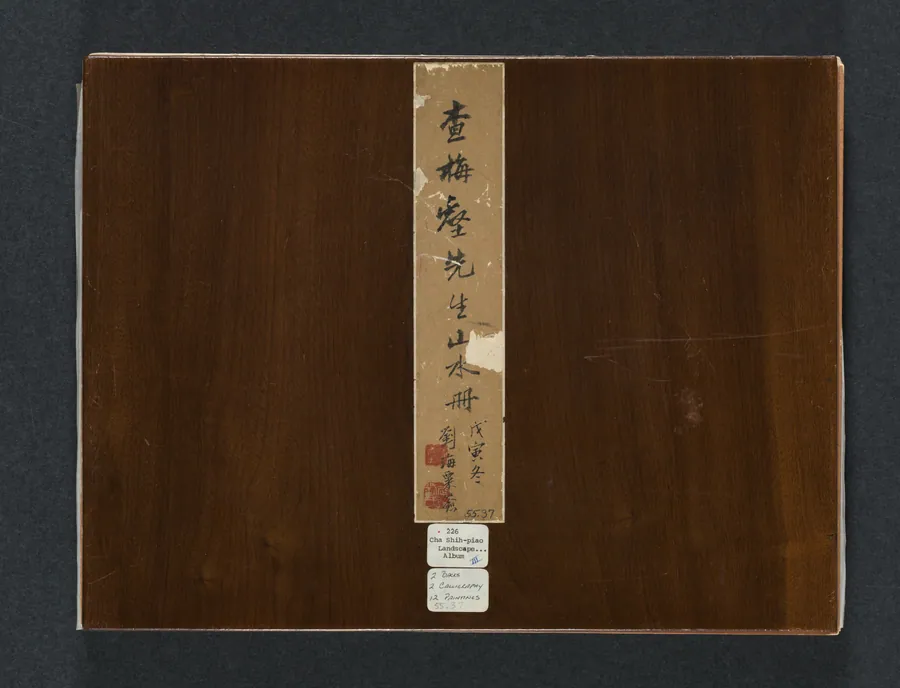 查梅壑先生山水冊
戊寅冬
劉海粟
55.37
226
Cha Shih-piao
Landscape...
Album III
2 BOOKS
2 CALLIGRAPHY
12 PAINTINGS
55.37